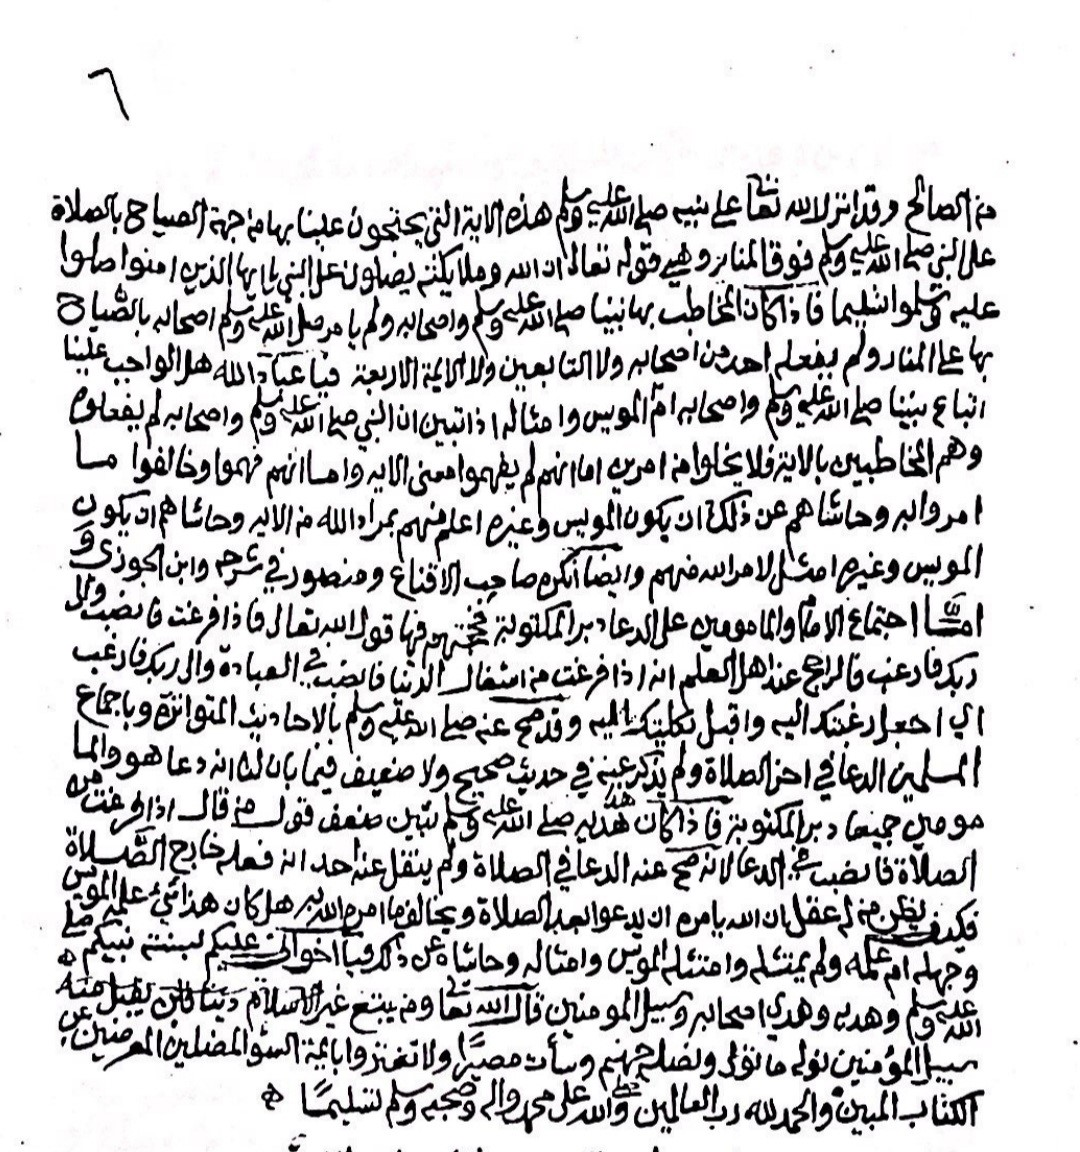 ٦
من الصالح وقد انزل الله تعا على نبيه صلى الله عليه وسلم هذه الاية التي يحتجون علينا بها من جهة الصياح بالصلاة
على النبي صلى الله عليه وسلم فوق المنابر وهي قوله تعالى ان الله وملايكته يصلون على النبي يا ايها الذين امنوا صلوا
عليه وسلموا تسليما فاذا كان المخاطب بها نبينا صلى الله عليه وسلم واصحابه ولم يامر صلى الله عليه وسلم اصحابه بالصياح
بها على المنار ولم يفعله احد من اصحابه ولا التابعين ولا الايمة الاربعة فيا عباد الله هل الواجب علينا
اتباع نبينا صلى الله عليه وسلم واصحابه ام المويس وامثاله اذا تبين ان النبي صلى الله عليه وسلم واصحابه لم يفعلوه
وهم المخاطبين بالاية فلا يخلوا من امرين اما انهم لم يفهموا معنى الايه واما انهم فهموا وخالفوا ما
امروا به وحاشاهم عن ذلك ان يكون المويس وغيره اعلم منهم بمراد الله من الايه وحاشاهم ان يكون
المويس وغيره امثل لامر الله منهم وايضا أنكره صاحب الاقناع ومنصور في شرحه وابن الجوزي و
امّا اجتماع الامام والمامومين على الدعا دبر المكتوبة فحجتهم فيها قول الله تعالى فاذا فرغت فانصب والى
ربك فارغب فالراجح عند اهل العلم انه اذا فرغت من اشغال الدنيا فانصب في العبادة والى ربك فارغب
اي اجعل رغبتك اليه واقبل بكليتك اليه وقد صح عنه صلى الله عليه وسلم بالاحاديث المتواترة وباجماع
المسلمين الدعا في اخر الصلاة ولم يذكر عنه في حديث صحيح ولا ضعيف فيما بان لنا انه دعا هو والما
مومين جميعا دبر المكتوبة فاذا كان هذا هديه صلى الله عليه وسلم تبين ضعف قول من قال اذا فرغت من
الصلاة فانصب في الدعا لانه صح عنه الدعا في الصلاة ولم ينقل عنه احد انه فعله خارج الصّلاة
فكيف يظن من له عقل ان الله يامره ان يدعوا بعد الصلاة ويخالف ما امره الله به هل كان هذا شيء علمه المويس
وجهله ام علمه ولم يمتثله وامتثله المويس وامثاله وحاشاه عن ذلك فيا اخواني عليكم بسنة نبيكم صلى
الله عليه وسلم وهديه وهدي اصحابه وسبيل المومنين قال الله تعا ومن يبتغ غير الاسلام دينا فلن يقبل منه
سبيل المؤمنين نوله ما تولى ونصله جهنم وسأت مصيرًا ولا تغتروا بايمة السؤ المضلين المعرضين عن
الكتاب المبين والحمد لله رب العالمين وصلى الله على محمد واله وصحبه وسلم تسليمًا ه